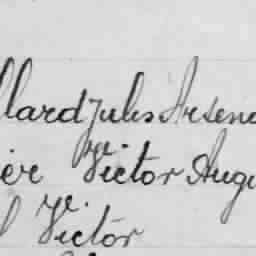 llard Jules Arsene
ier Victor Augu
l Victor